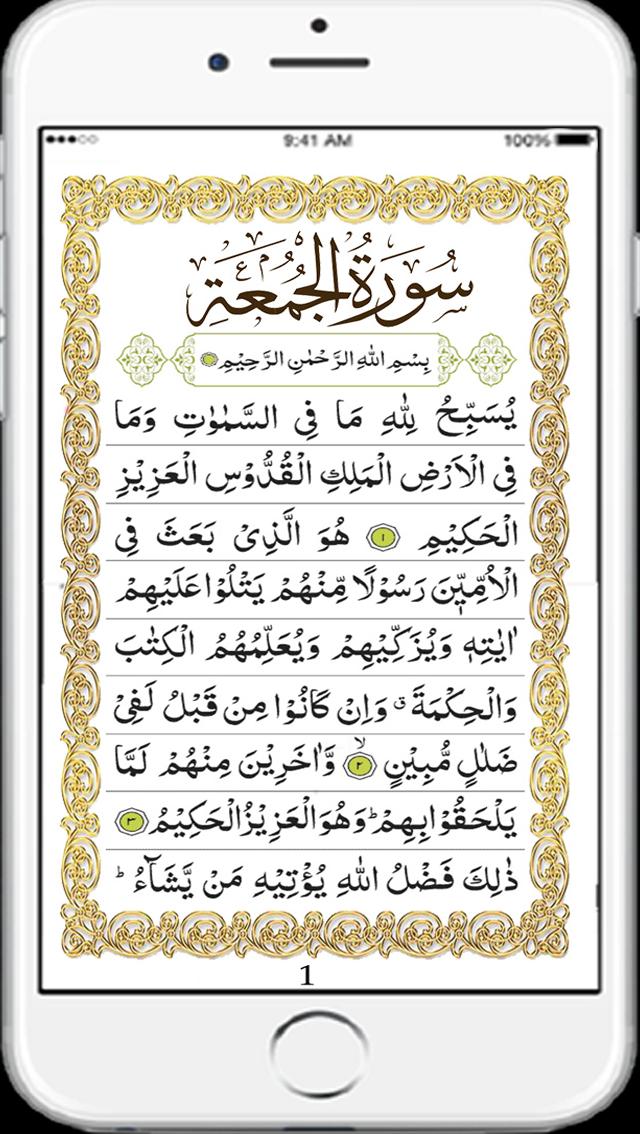 9:41 AM 100%
سُوْرَةُ الْجُمُعَةِ
بِسْمِ اللهِ الرَّحْمٰنِ الرَّحِيْمِ
يُسَبِّحُ لِلّٰهِ مَا فِى السَّمٰوٰتِ وَمَا
فِى الْاَرْضِ الْمَلِكِ الْقُدُّوْسِ الْعَزِيْزِ
الْحَكِيْمِ ۱ هُوَ الَّذِىْ بَعَثَ فِى
الْاُمِّيّٖنَ رَسُوْلًا مِّنْهُمْ يَتْلُوْا عَلَيْهِمْ
اٰيٰتِهٖ وَيُزَكِّيْهِمْ وَيُعَلِّمُهُمُ الْكِتٰبَ
وَالْحِكْمَةَ ۗ وَاِنْ كَانُوْا مِنْ قَبْلُ لَفِىْ
ضَلٰلٍ مُّبِيْنٍ ۙ ۲ وَّاٰخَرِيْنَ مِنْهُمْ لَمَّا
يَلْحَقُوْا بِهِمْ ؕ وَهُوَ الْعَزِيْزُ الْحَكِيْمُ ۳
ذٰلِكَ فَضْلُ اللهِ يُؤْتِيْهِ مَنْ يَّشَآءُ ؕ
1